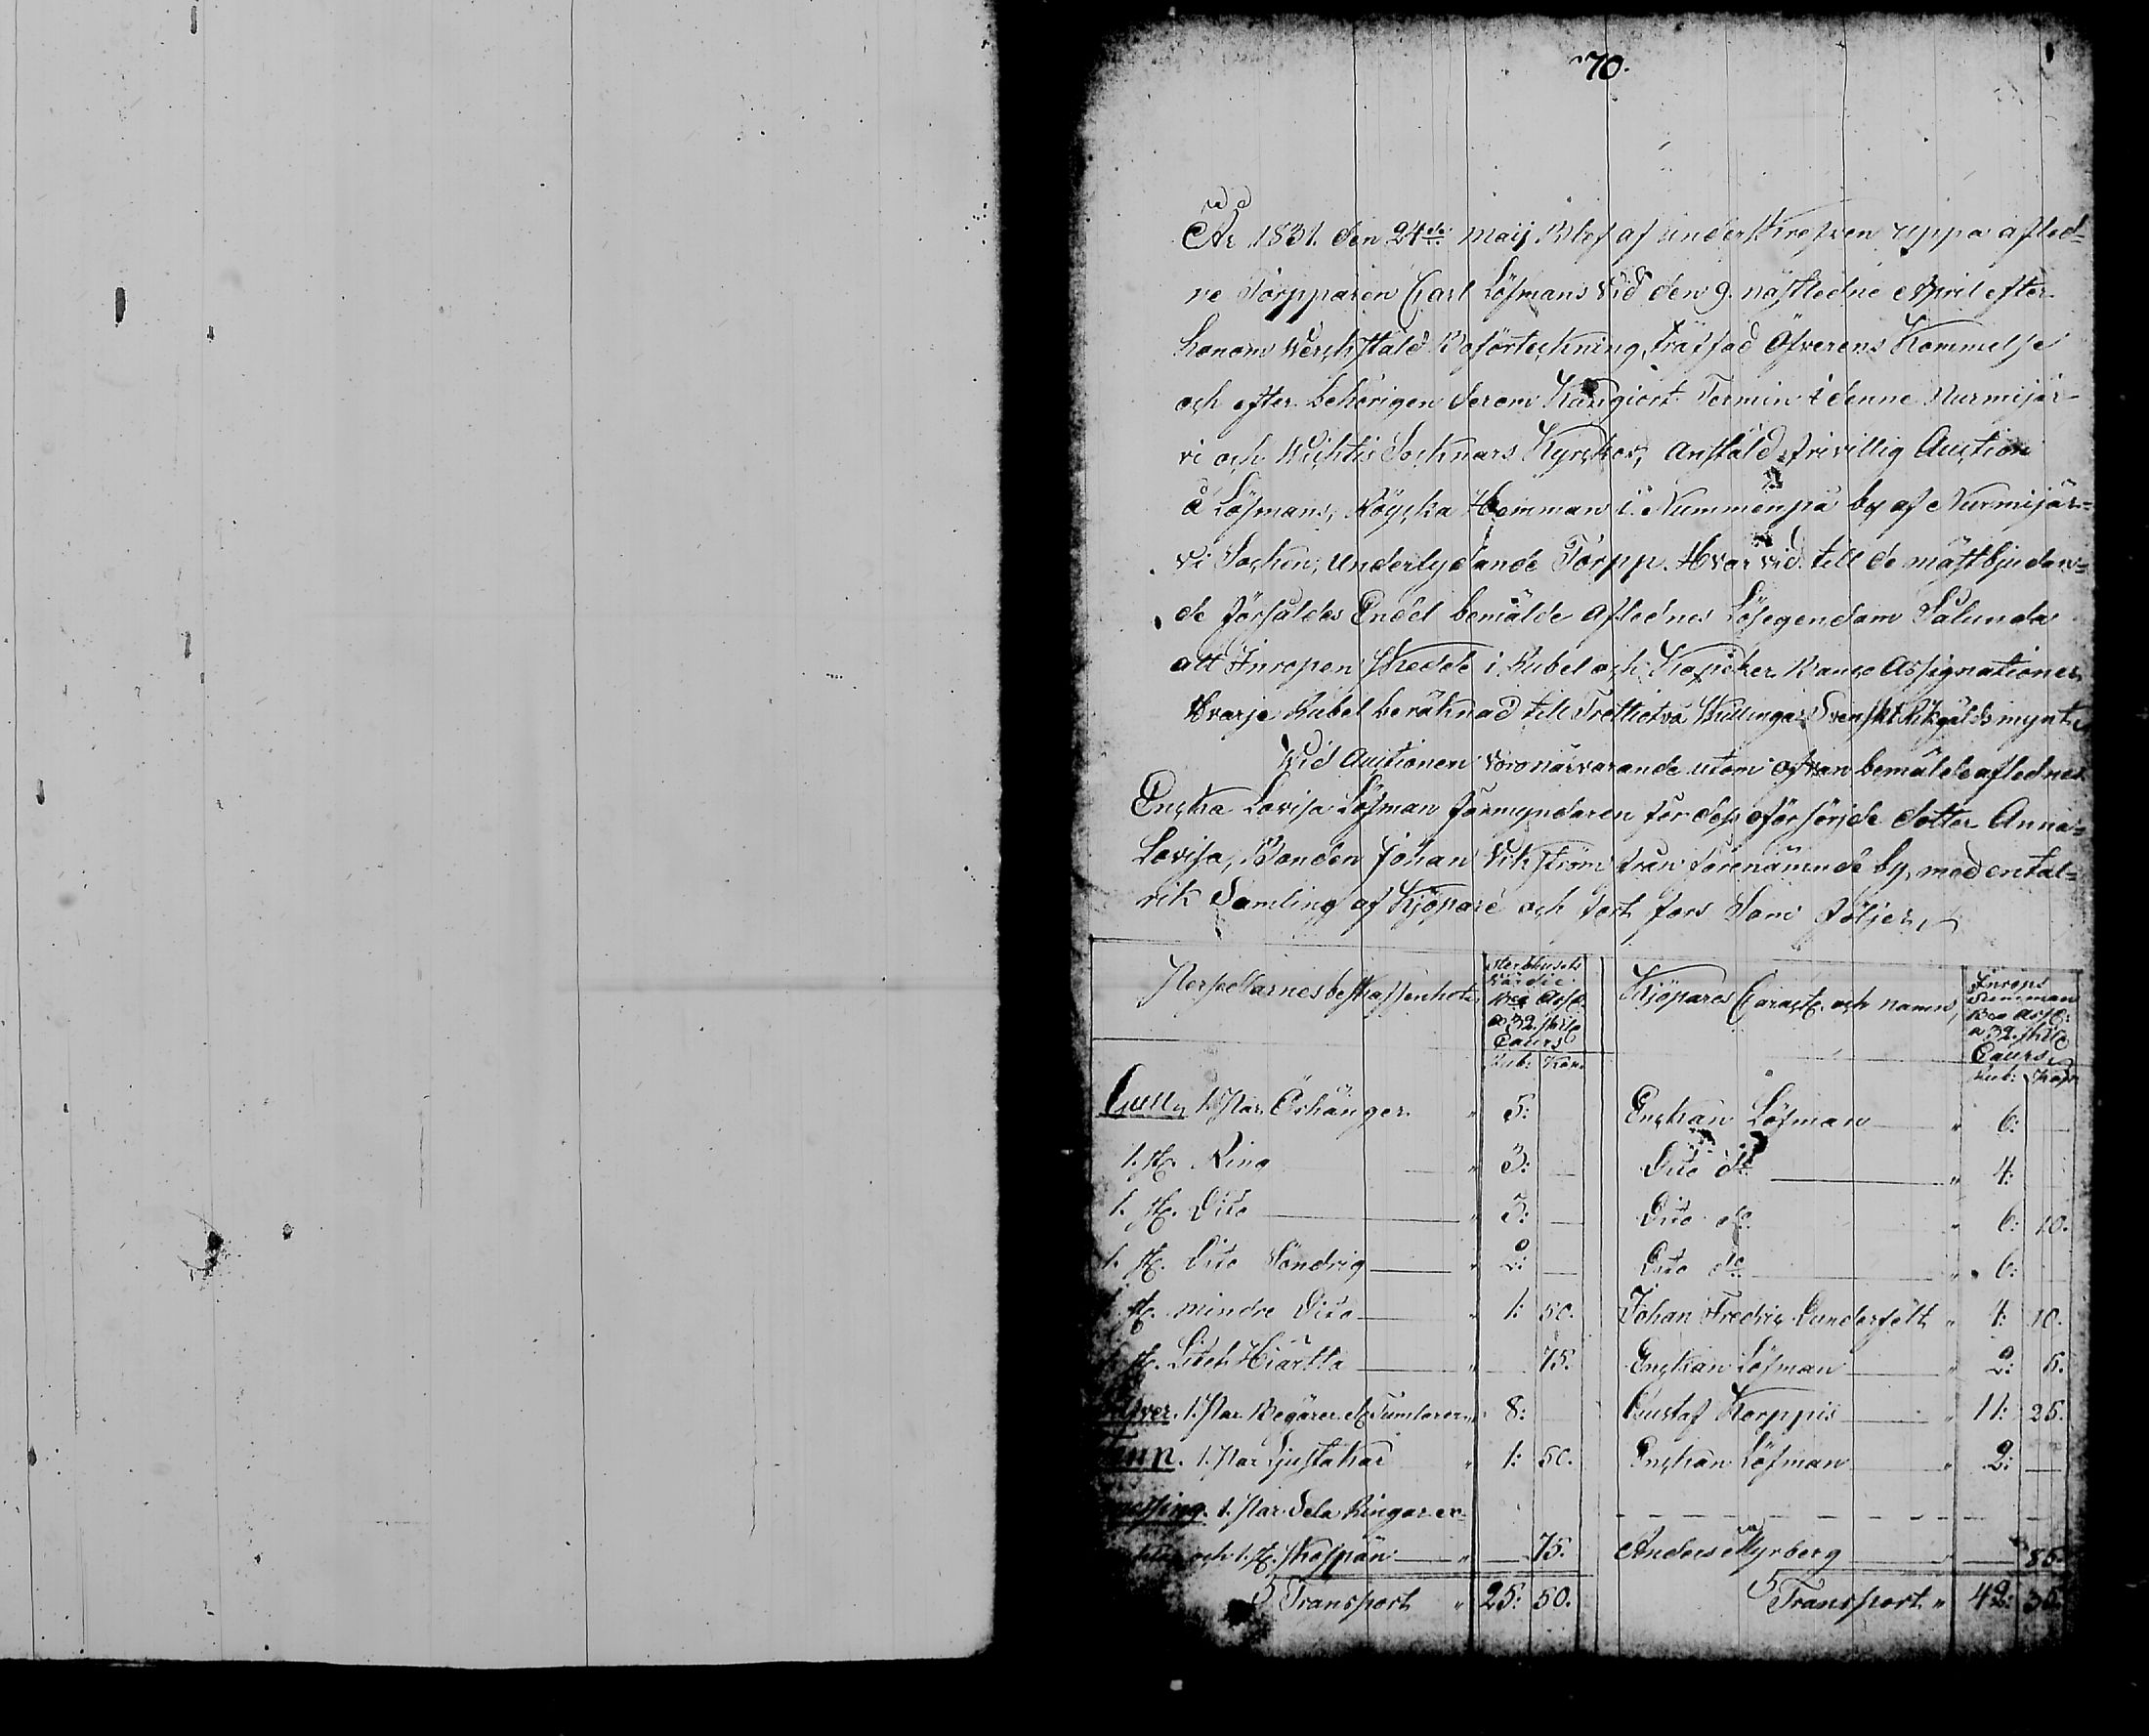 70.
År 1831. den 24de Maij Blef af underskrefven uppå afled-
ne Torpparen Carl Löfmans Vid den 9. nästledne April efter
honom Verckstäld Boförteckning, träffad Öfverens Kommelse
och efter behörigen derom Kungiort Termin i denne Nurmijär-
vi och Wichtis Socknars Kyrckor, anstäld frivillig Auction
å Löfmans, Röyska Hemman i Nummenpä by af Nurmijär-
vi Socken, underlydande Torpp. Hvar vid till de mästbjudan-
de försåldes Endel bemälde Aflednes Lösegendom Sålunda
att Inropen skedde i Rubel och Kopeker Banco Assignationer
Hvarje Rubel beräknad till Trettiotvå Skillingar Svenskt Riksgälds mynt.
Vid Auctionen Voro närvarande utom ofvan bemälde aflednes
Enckia Lovisa Löfman förmyndaren för dess oförsörjde dotter Anna-
Lovisa, Bonden Johan Vikström från förenämnde by, med en tal-
rik Samling af Kjöpare och fort fors Som följer,
Persedlarnes beskaffenhet
Sterbhusets
Värdie
Bco Assg:
a 32. skill
Cours
Rub: Kop:
Kjöpares Caracter och namn,
Inrops
Summan
Bco Assg:
a 32. skill
Cours
Rub: Kop:
Guld, 1. Par Örhänger " 5: Enckan Löfman " 6:
1. st. Ring " 3: Dito do " 4:
1. st. Dito " 3: Dito do " 6: 10.
1. st. Dito Söndrig " 2: Dito do " 6:
1 st. mindre Dito " 1: 50. Johan Fredric Dunderfelt " 4: 10.
1 st. Litet Hiärtta " 75. Enckan Löfman " 2: 5.
Silfver. 1. Par Begärer eller Tumlarer " 8: Gustaf Korppis " 11: 25.
Tenn. 1. Par Ljustakar " 1: 50. Enckan Löfman " 2:
Messing. 1. Par Sela Ringar en
och 1. st. Skospän " 75. Anders Myrberg " 85
Transport " 25: 50. Transport " 42: 35.